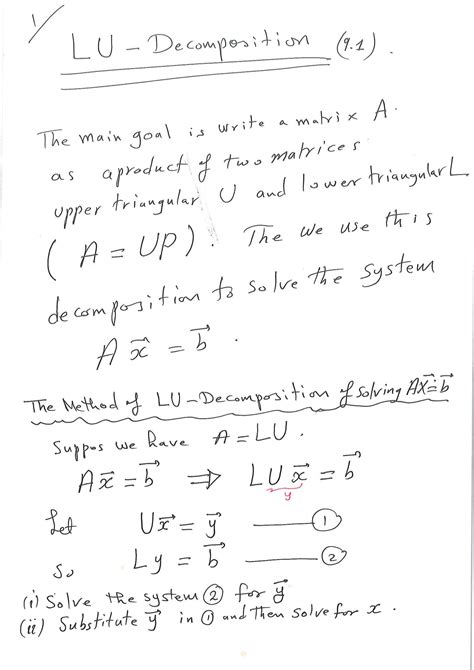 1/
LU - Decomposition (9.1).
The main goal is write a matrix A.
as a product of two matrices
upper triangular U and lower triangular L
(A = UP). The we use this
decomposition to solve the system
A x⃗ = b⃗ .
The Method of LU-Decomposition of solving AX⃗=b⃗
Suppos we have A = LU.
Ax⃗ = b⃗ ⇒ LUx⃗ = b⃗
y
Let Ux⃗ = y⃗ ——— ①
So Ly = b⃗ ——— ②
(i) Solve the system ② for y⃗
(ii) Substitute y⃗ in ① and then solve for x.